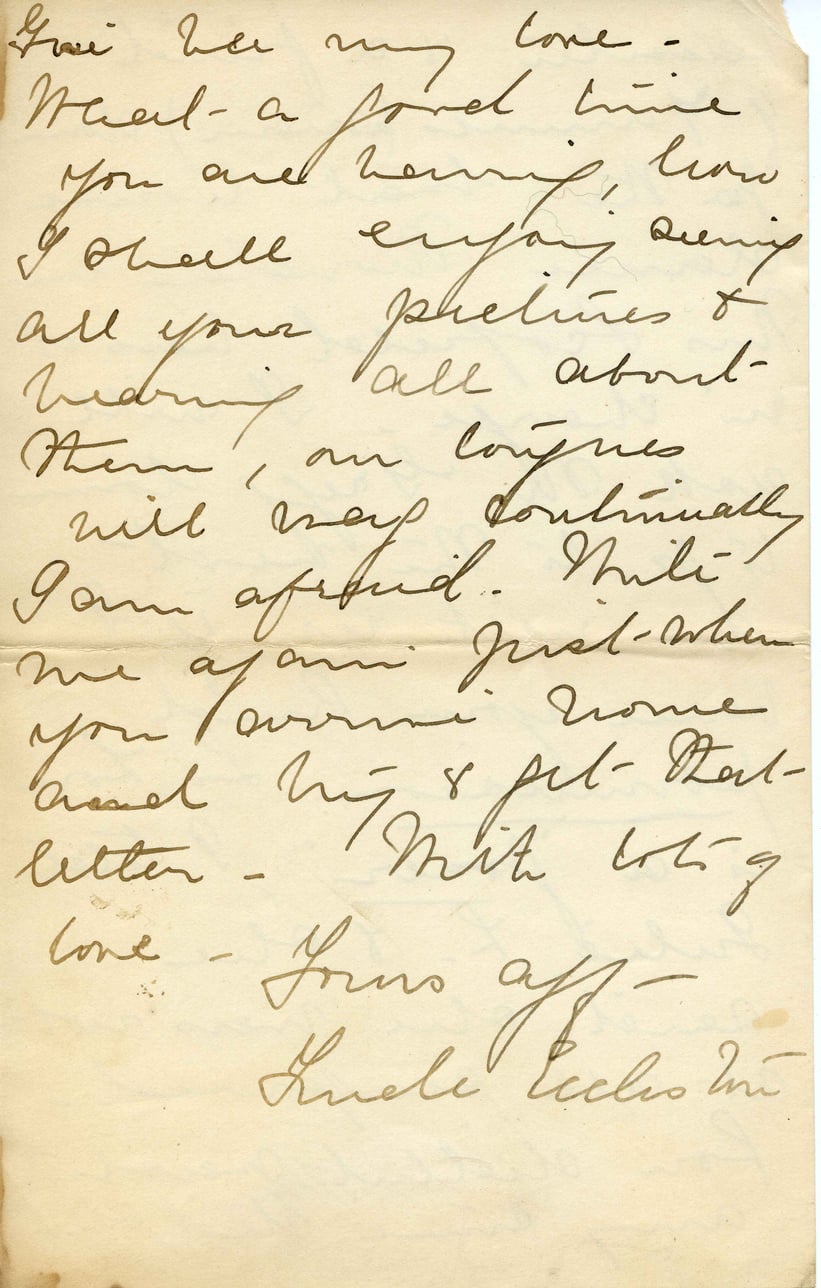 Give her my love -
What a good time
you are having, how
I shall enjoy seeing
all your pictures &
hearing all about
them, our tongues
will wag continually
I am afraid. Write
me again just when
you arrive home
and try & get that
letter - With lots of
love - Yours aff -
Uncle Eccleston